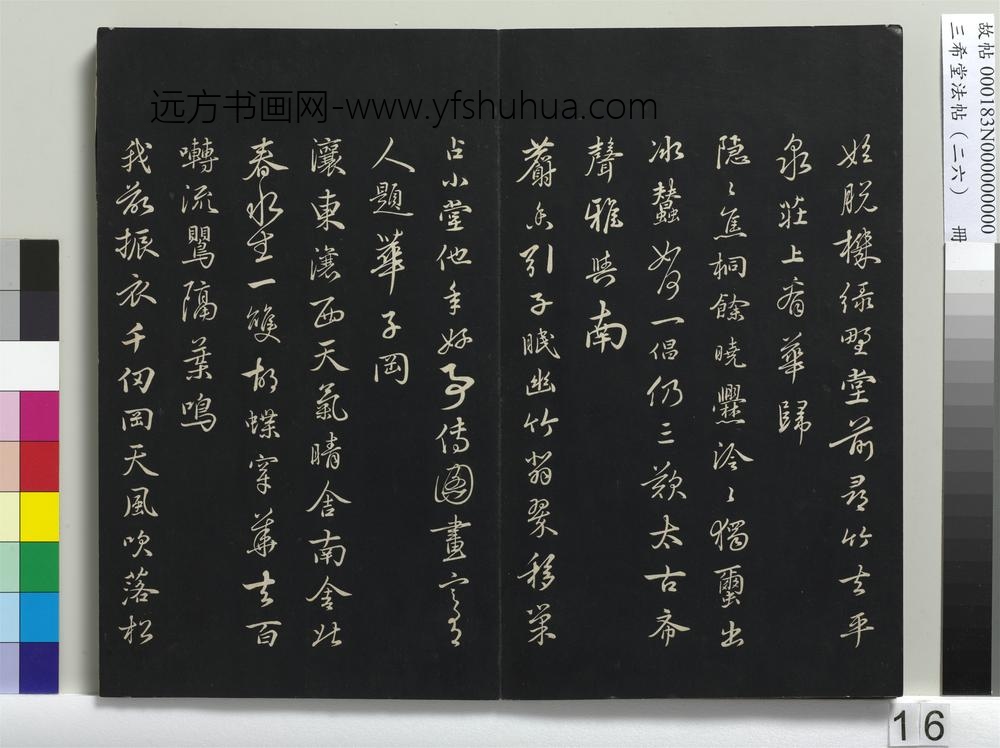 故帖000183N000000000
三希堂法帖(二六) 冊
远方书画网-www.yfshuhua.com
始脫機綠野堂前尋竹去平
泉莊上看華歸
隱〻焦桐餘曉爨泠〻獨繭出
冰蠶如何一倡仍三歎太古希
聲雅與南
麝香引子眠幽竹翡翠移巢
占小堂他年好事傳圖畫定有
人題華子岡
瀼東瀼西天氣晴舍南舍北
春水生一雙胡蝶穿華去百
囀流鶯隔葉鳴
我欲振衣千仞岡天風吹落松
16